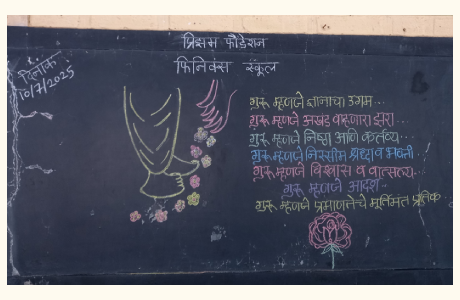 प्रिझम फौंडेशन
फिनिक्स स्कूल
दिनांक
10/7/2025
गुरू म्हणजे ज्ञानाचा उगम...
गुरू म्हणजे अखंड वाहणारा झरा...
गुरू म्हणजे निष्ठा आणि कर्तव्य...
गुरू म्हणजे निस्सीम श्रध्दा व भक्ती...
गुरू म्हणजे विश्वास व वात्सल्य...
गुरू म्हणजे आदर्श..
गुरू म्हणजे प्रमाणतेचे मूर्तिमंत प्रतिक